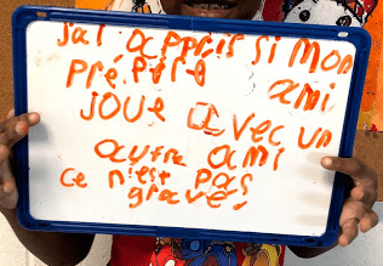 jai appris si mon
pré.pere ami
joue avec un
autre ami
ce n'est pas
grave,